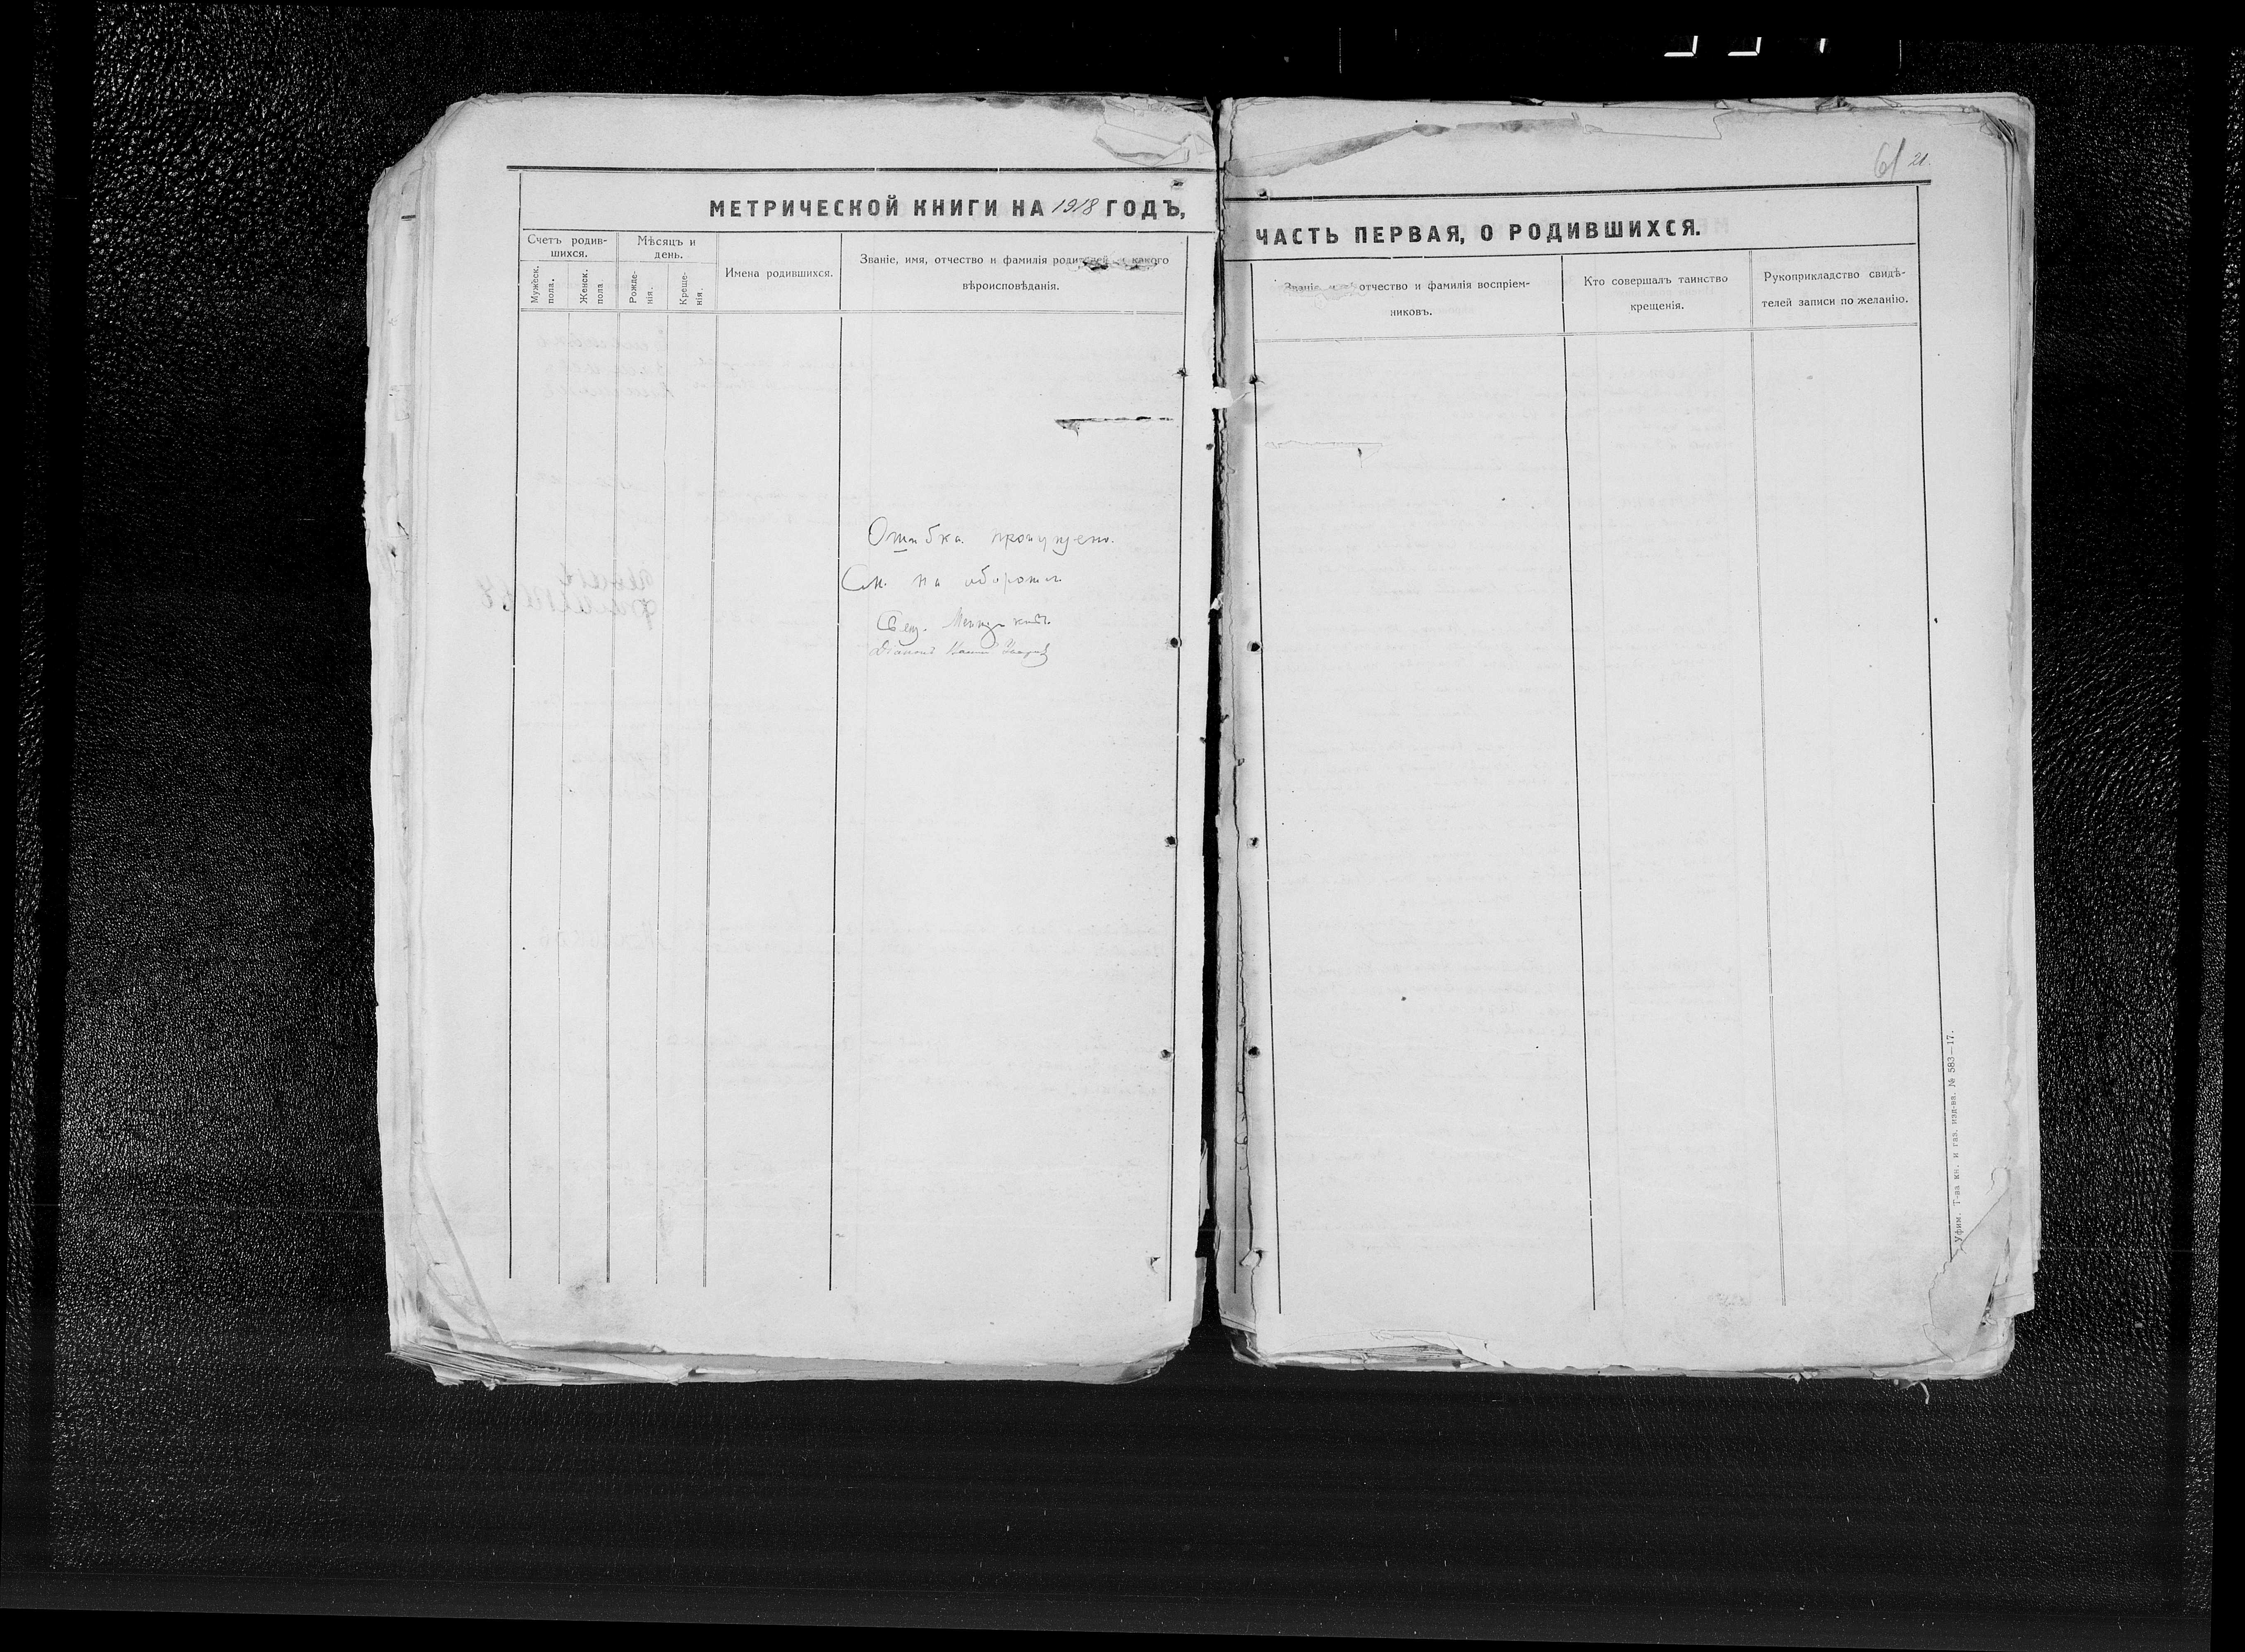 61 21.
МЕТРИЧЕСКОЙ КНИГИ НА 1918 ГОДЪ,
Счетъ родив-
шихся.
Мужеск.
пола.
Женск.
пола
Мѣсяцъ и
день.
Рожде-
нія.
Креще-
нія.
Имена родившихся.
Званіе, имя, отчество и фамилія родителей и какого
вѣроисповѣданія.
Ошибка пропущено.
См. на обороте
Свящ.
Діаконъ
ЧАСТЬ ПЕРВАЯ, О РОДИВШИХСЯ.
Званіе, отчество и фамилія воспріем-
никовъ.
Кто совершалъ таинство
крещенія.
Рукоприкладство свидѣ-
телей записи по желанію.
Уфим. Т-ва кн. и газ. изд-ва. № 583—17.